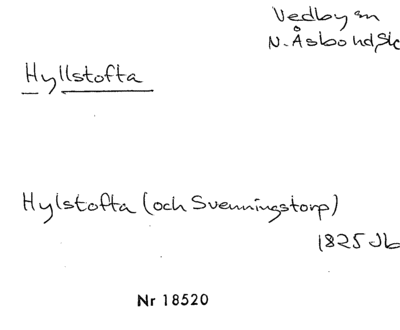 Vedby sn
N. Åsbo hd, Sk
Hyllstofta
Hylstofta (och Svenningstorp)
1825 Jb
Nr 18520